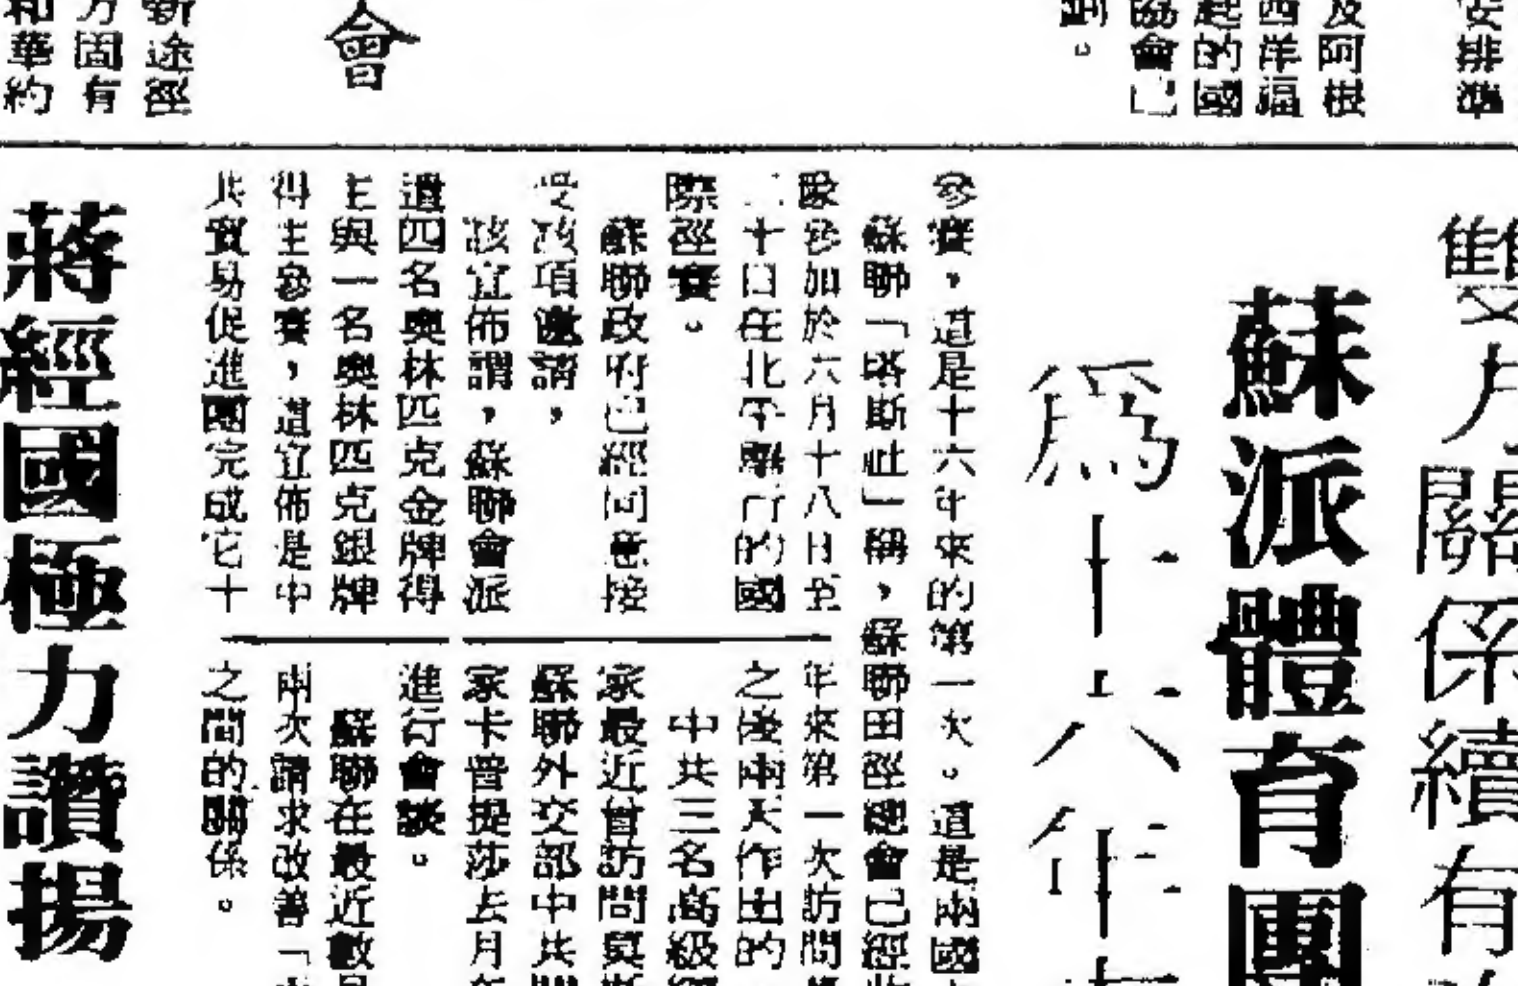 安排準
及阿根
西洋福
的國
協會已
。
會
新途徑
方固有
和華約
雙方關係續有
蘇派體育團
為十六年
參賽，這是十六年來的第一次。這是兩國
蘇聯「塔斯社」稱，蘇聯田徑總會已經
參加於六月十八日至
二十日在北平舉行的國
際徑賽。
蘇聯政府已經同意接
受該項邀請，
該宣佈謂，蘇聯會派
遣四名奧林匹克金牌得
主與一名奧林匹克銀牌
得主參賽，這宣佈是中
共貿易促進團完成它十
年來第一次訪問
之後兩天作出的
中共三名高級
家最近曾訪問莫斯
蘇聯外交部中共
家卡普提莎去月
進行會談。
蘇聯在最近數
兩次請求改善「
之間的關係。
蔣經國極力讚揚